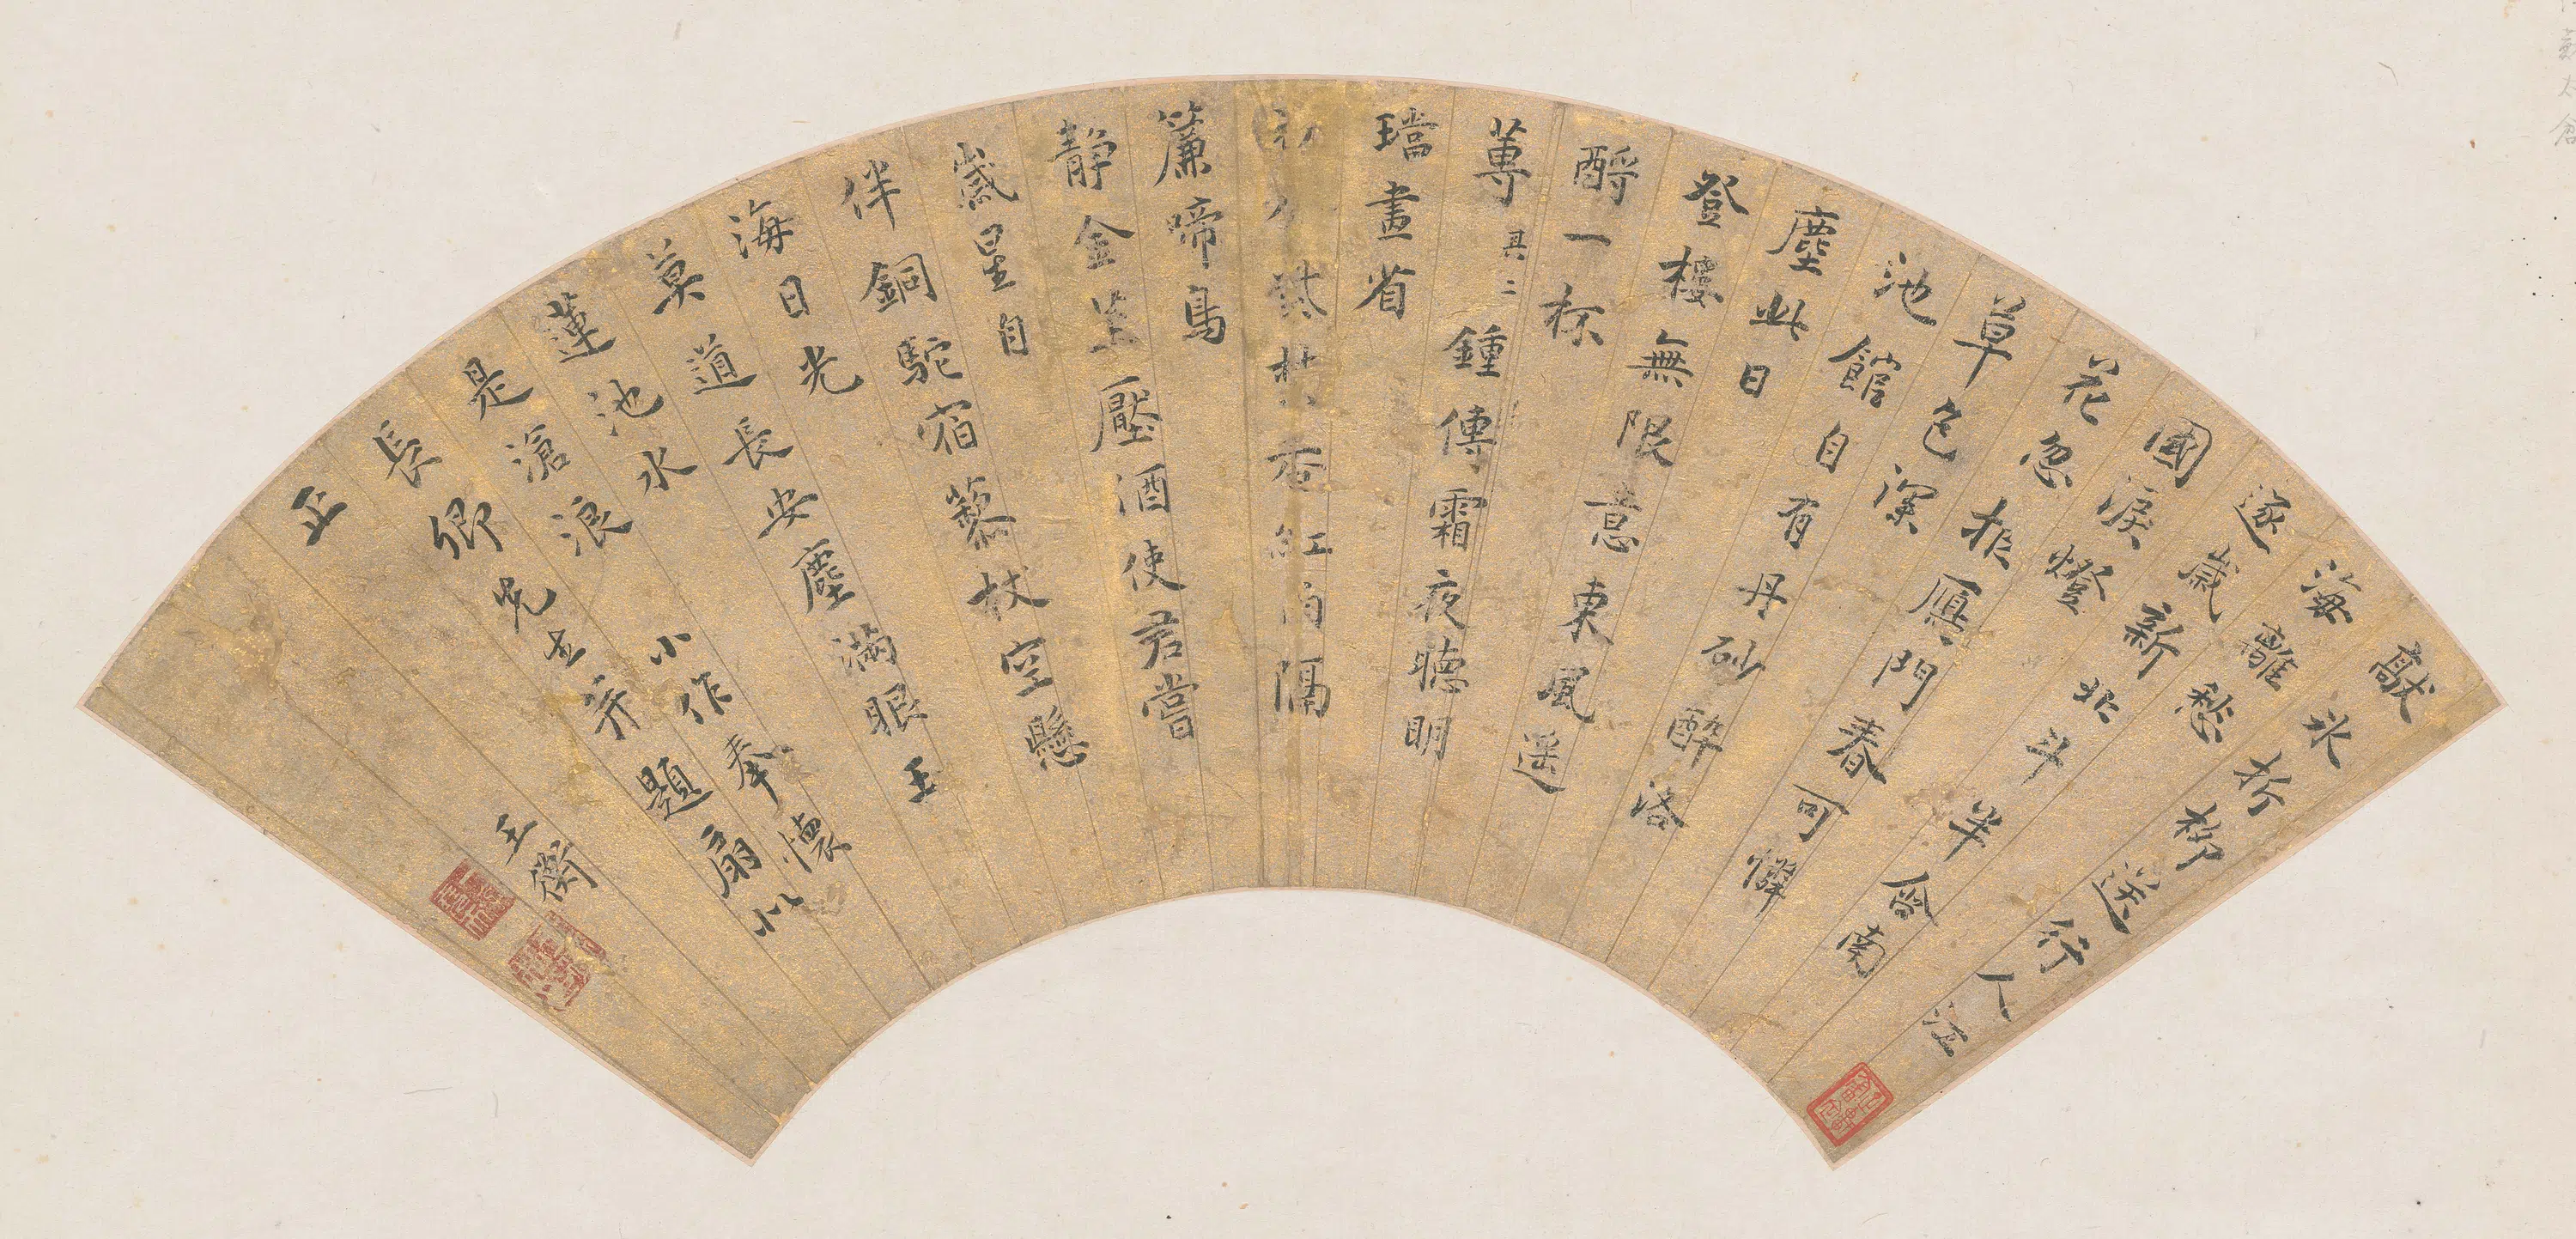 敲氷折柳送行人江
海離愁
逐歲新北斗半含南
國淚燈
花忽報雁門春可憐
草色深
池館自有丹砂酔洛
塵此日
登樓無限意東風遥
酹一杯
蓴 其二 鍾傳霜夜聴明
璫畫省
試茶香紅雨隔
簾啼鳥
静金莖壓酒使君嘗
歲星自
伴銅駝宿藜杖空懸
海日光
莫道長安塵滿眼玉
蓮池水
是滄浪 小作奉懐
長卿兄丈并題扇以
正 王衡